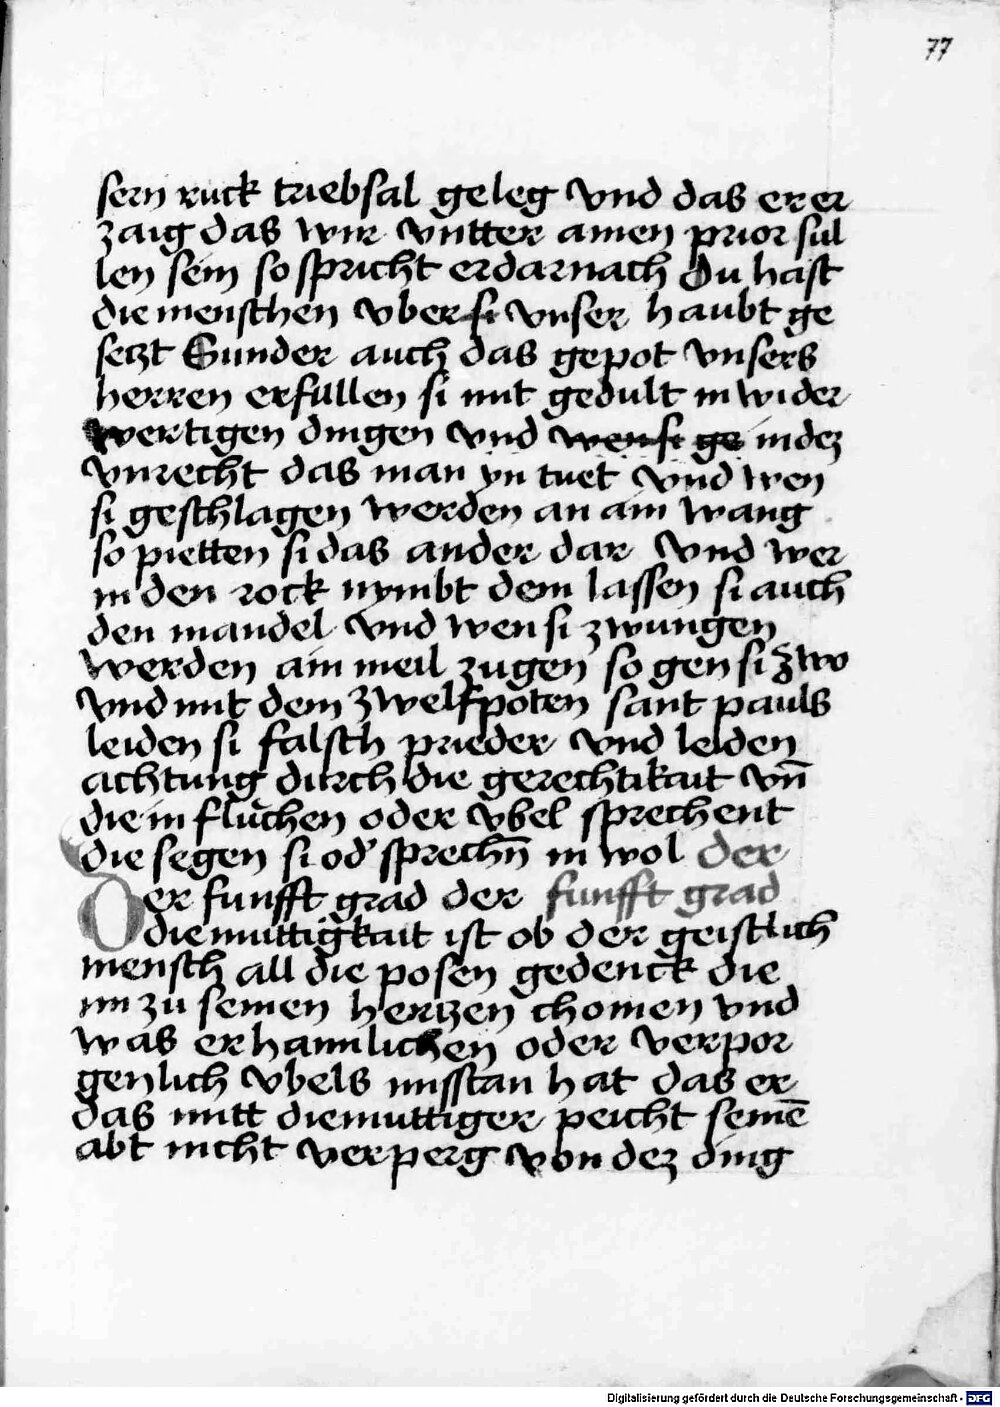 77
sern ruck triebsal geleg vnd das er er
zaig das wir vntter ainen prior sul
len sein so spricht er darnach Du hast
die menschen vber si vnser haubt ge
setzt Sunder auch das gepot vnsers
herren erfullen si mit gedult in wider
wertigen dingen vnd wen si ge in dez
vnrecht das man yn tuet vnd wen
si geschlagen werden an aim wang
so pietten si das ander dar vnd wer
in den rock nymbt dem lassen si auch
den mandel vnd wen si zwungen
werden ain meil zugen so gen si zwo
vnd mit dem zwelfpoten sant pauls
leiden si falsch prieder vnd leiden
achtung durch die gerechtikait vn̄
die in fluchen oder vbel sprechent
die segen si od' sprechn̄ in wol der
Der funfft grad der funfft grad
diemuttigkait ist ob der geistlich
mensch all die posen gedenck die
im zu seinen hertzen chomen vnd
was er haimlichen oder verpor
genlich vbels misstan hat das er
das mitt diemuttiger peicht seinē
abt nicht verperg von dez ding
Digitalisierung gefördert durch die Deutsche Forschungsgemeinschaft - DFG